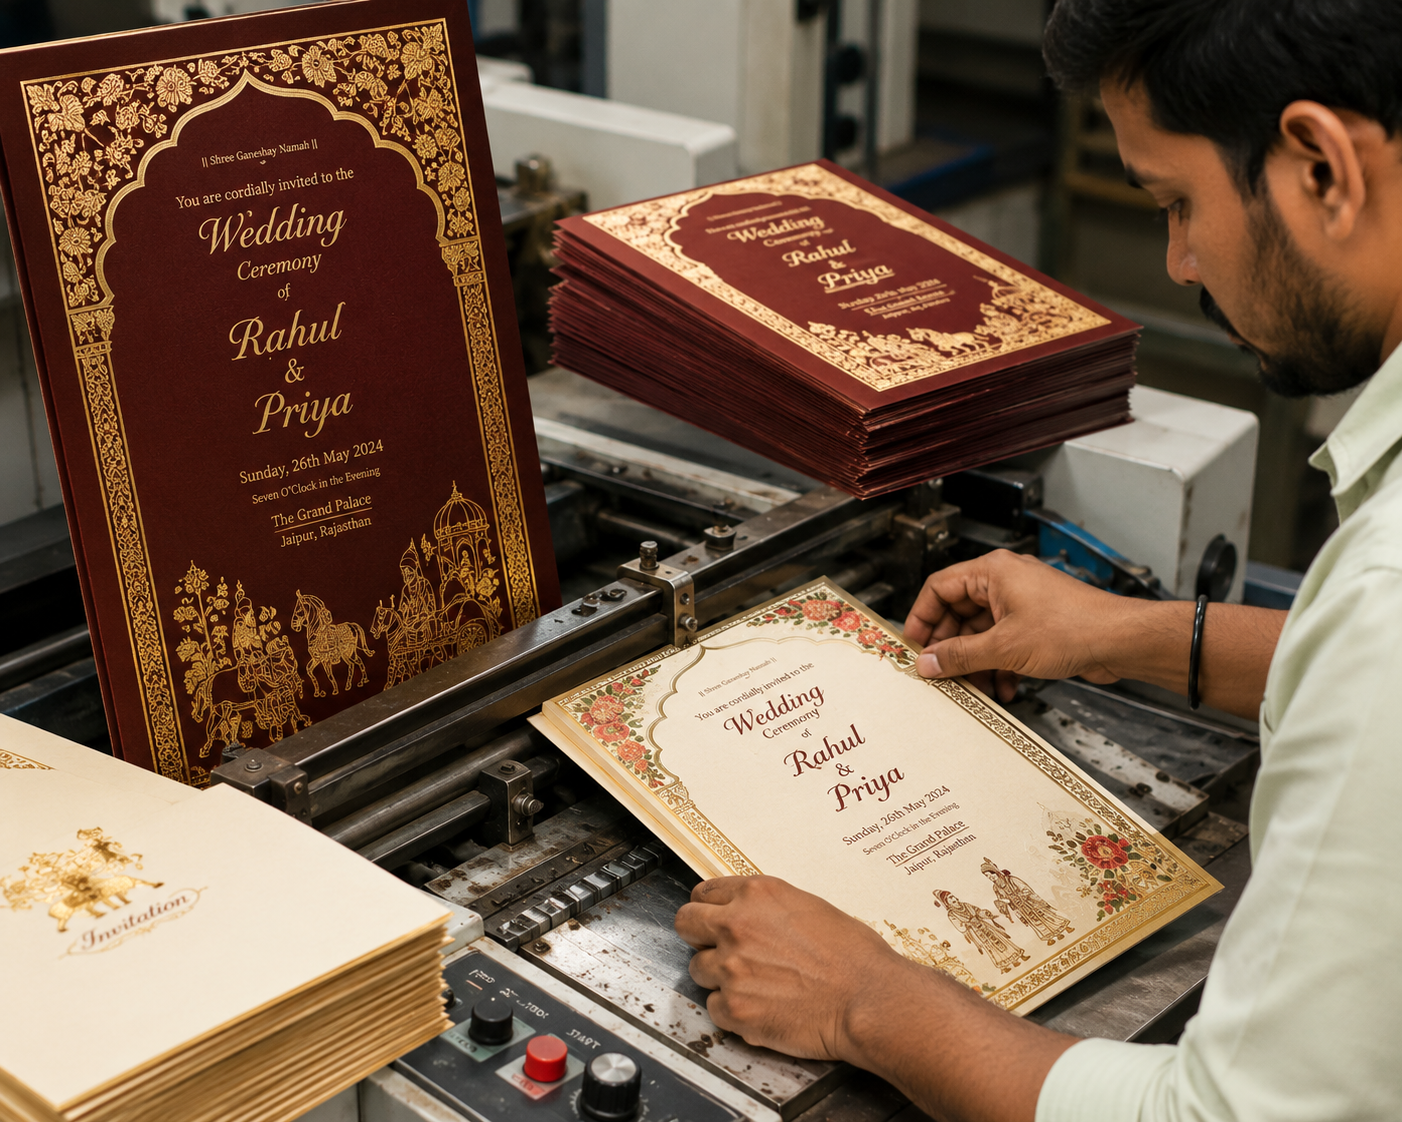 || Shree Ganeshay Namah ||
You are cordially invited to the
Wedding
Ceremony
of
Rahul
&
Priya
Sunday, 26th May 2024
Seven O'Clock in the Evening
The Grand Palace
Jaipur, Rajasthan
Wedding
of
Rahul
&
Priya
|| Shree Ganeshay Namah ||
You are cordially invited to the
Wedding
Ceremony
of
Rahul
&
Priya
Sunday, 26th May 2024
Seven O'Clock in the Evening
The Grand Palace
Jaipur, Rajasthan
Invitation